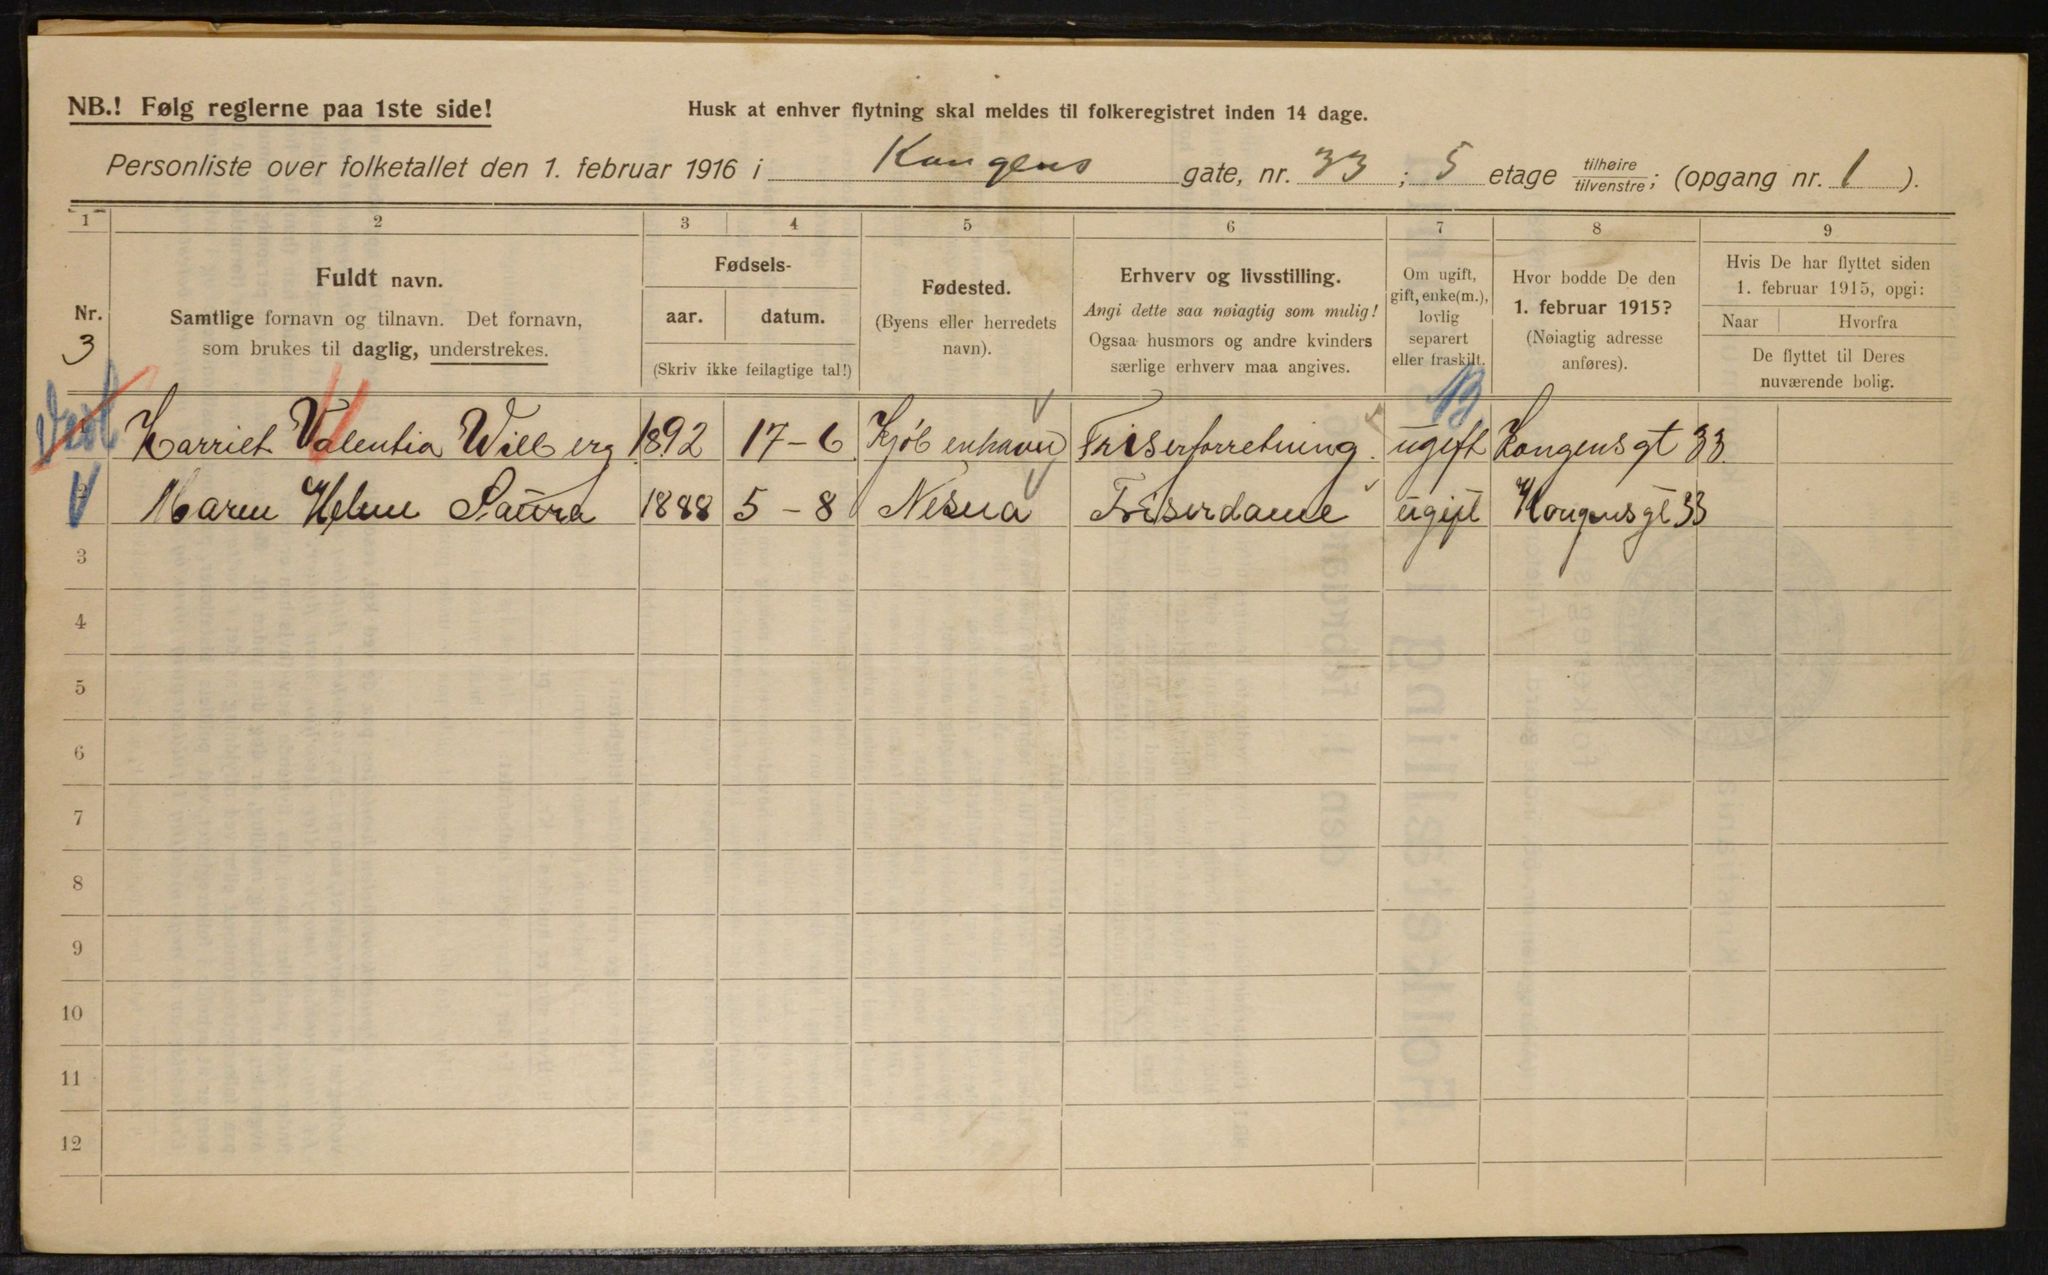 NB.! Følg reglerne paa 1ste side!
Husk at enhver flytning skal meldes til folkeregistret inden 14 dage.
Personliste over folketallet den 1. februar 1916 i Kongens gate, nr. 33 ; 5 etage tilhøire/tilvenstre; (opgang nr. 1 ).
1 2 3 4 5 6 7 8 9
Nr.
3
Fuldt navn.
Samtlige fornavn og tilnavn. Det fornavn,
som brukes til daglig, understrekes.
Fødsels-
aar. datum.
(Skriv ikke feilagtige tal!)
Fødested.
(Byens eller herredets
navn).
Erhverv og livsstilling.
Angi dette saa nøiagtig som mulig!
Ogsaa husmors og andre kvinders
særlige erhverv maa angives.
Om ugift,
gift, enke(m.),
lovlig
separert
eller fraskilt.
Hvor bodde De den
1. februar 1915?
(Nøiagtig adresse
anføres).
Hvis De har flyttet siden
1. februar 1915, opgi:
Naar Hvorfra
De flyttet til Deres
nuværende bolig.
Harriet Valentia Willberg 1892 17-6 Kjøbenhavn Friserforretning. ugift Kongensgt 33
2 Maren Helene 1888 5-8 Nesna Friserdame ugift Kongensgt 33
3
4
5
6
7
8
9
10
11
12